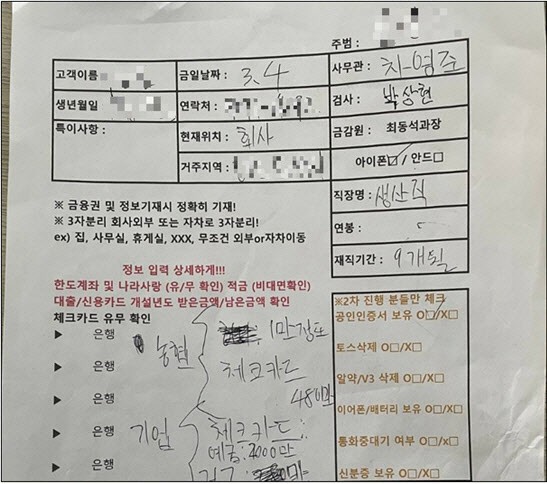 주범 :
고객이름
금일날짜 : 3. 4
사무관 : 차영준
생년월일
연락처 :
검사 : 박상현
특이사항 :
현재위치 : 회사
금감원 : 최동석과장
거주지역 :
아이폰☑ / 안드□
직장명 : 생산직
연봉 :
재직기간 : 9개월
※ 금융권 및 정보기재시 정확히 기재!
※ 3자분리 회사외부 또는 자차로 3자분리!
ex) 집, 사무실, 휴게실, XXX, 무조건 외부or자차이동
정보 입력 상세하게!!!
한도계좌 및 나라사랑 (유/무 확인) 적금 (비대면확인)
대출/신용카드 개설년도 받은금액/남은금액 확인
체크카드 유무 확인
▶ 은행 농협 1만정도
▶ 은행 체크카드
▶ 은행 48만
▶ 은행 기업 체크카드
예금: 2000만
▶ 은행
※2차 진행 분들만 체크
공인인증서 보유 O□/X□
토스삭제 O□/X□
알약/V3 삭제 O□/X□
이어폰/배터리 보유 O□/X□
통화중대기 여부 O□/x□
신분증 보유 O□/X□